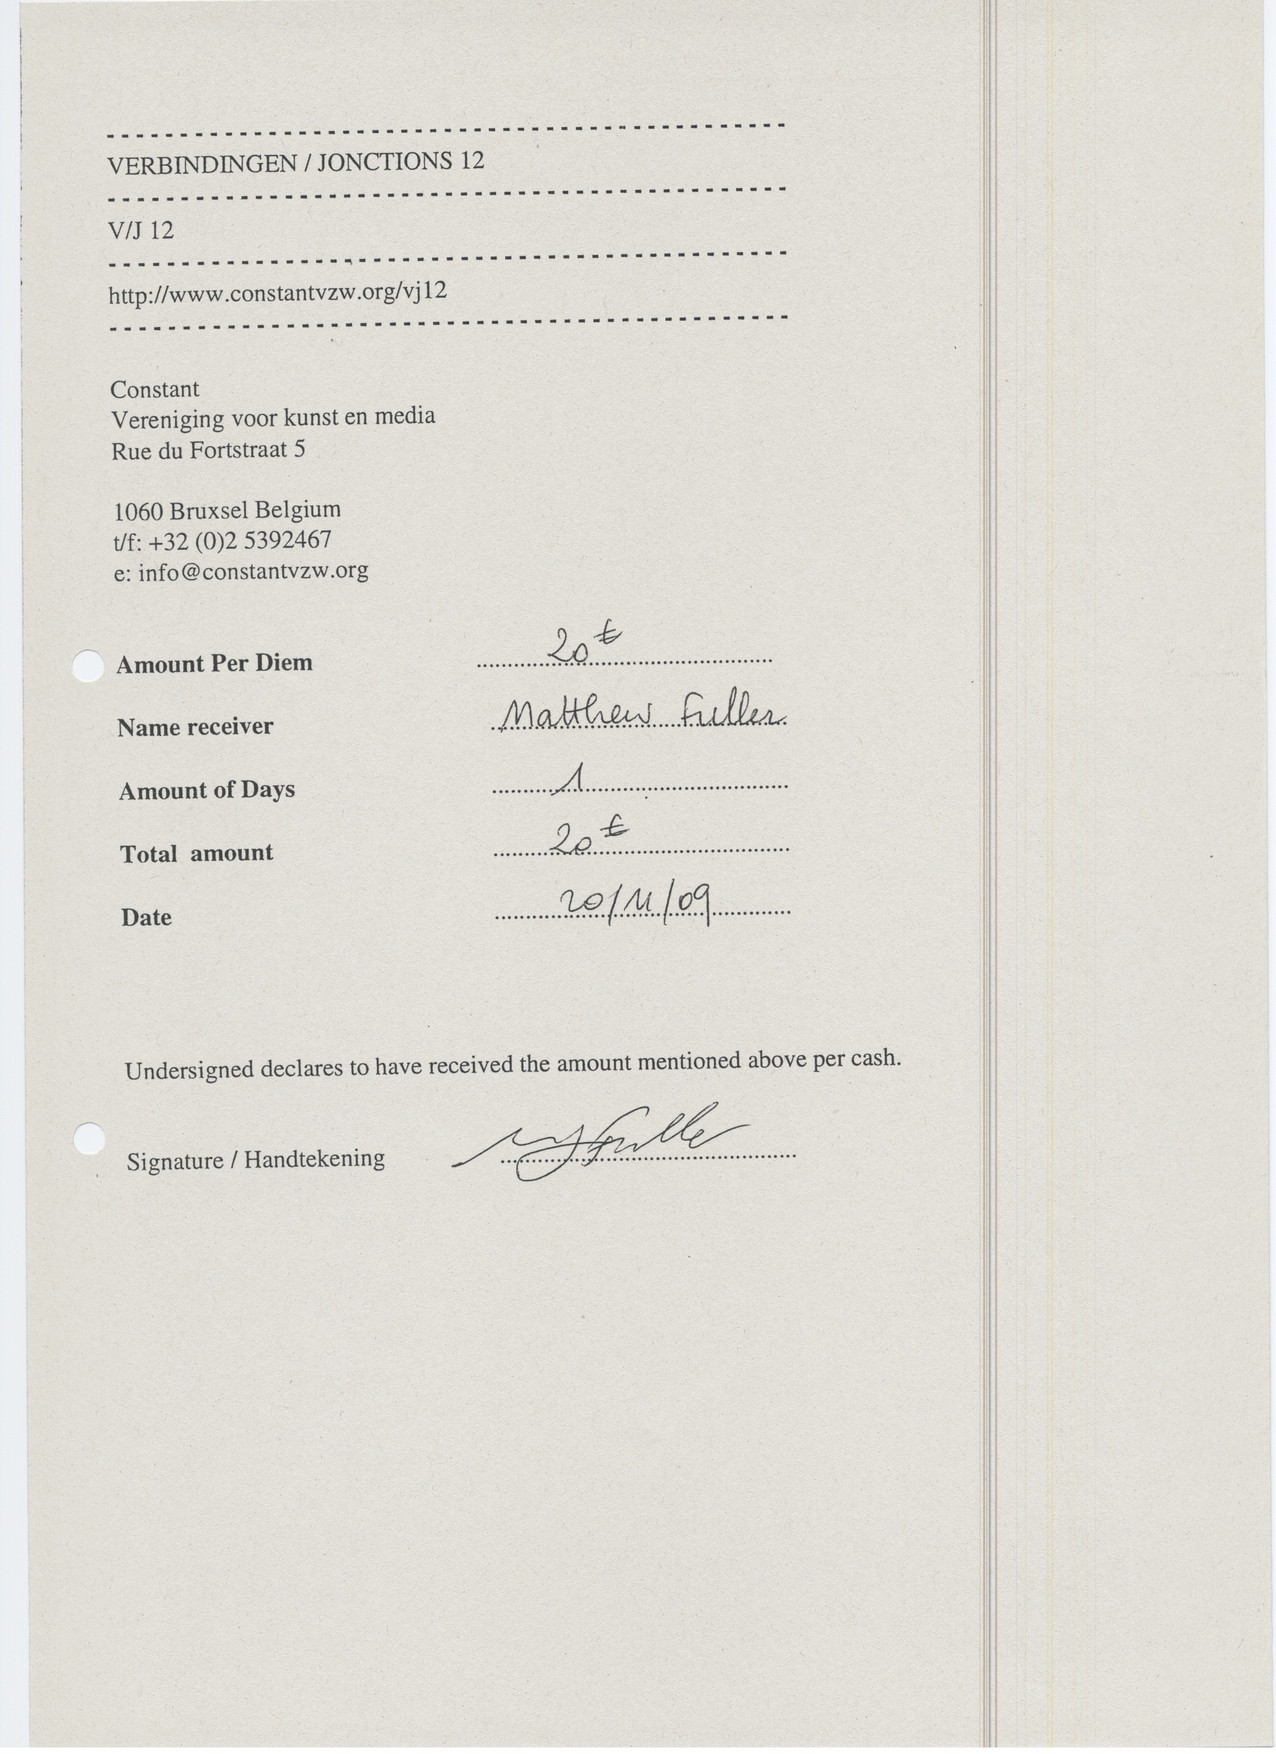 VERBINDINGEN / JONCTIONS 12
V/J 12
http://www.constantvzw.org/vj12
Constant
Vereniging voor kunst en media
Rue du Fortstraat 5
1060 Bruxsel Belgium
t/f: +32 (0)2 5392467
e: info@constantvzw.org
Amount Per Diem 20 €
Name receiver Matthew Fuller
Amount of Days 1
Total amount 20 €
Date 20/11/09
Undersigned declares to have received the amount mentioned above per cash.
Signature / Handtekening M Fuller